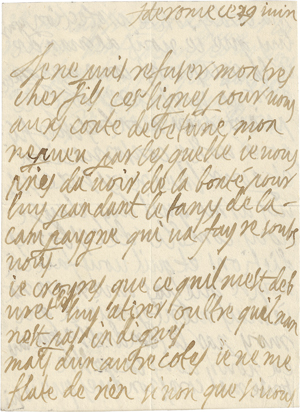 de rome ce 29 iuin
Je ne puis refuser mon tres
cher fils ces lignes pour vous
au conte de betune mon
neueu par les quelle ie vous
pries dauoir de la bonte pour
luy pandant le tamps de la
campaygne qui va fayre soubs
vous
ie croyres que ce quil mest de
luy atirer oultre quil nan
nest pas indignes
mais dun autre cotes ie ne me
flate de rien si non que si vous